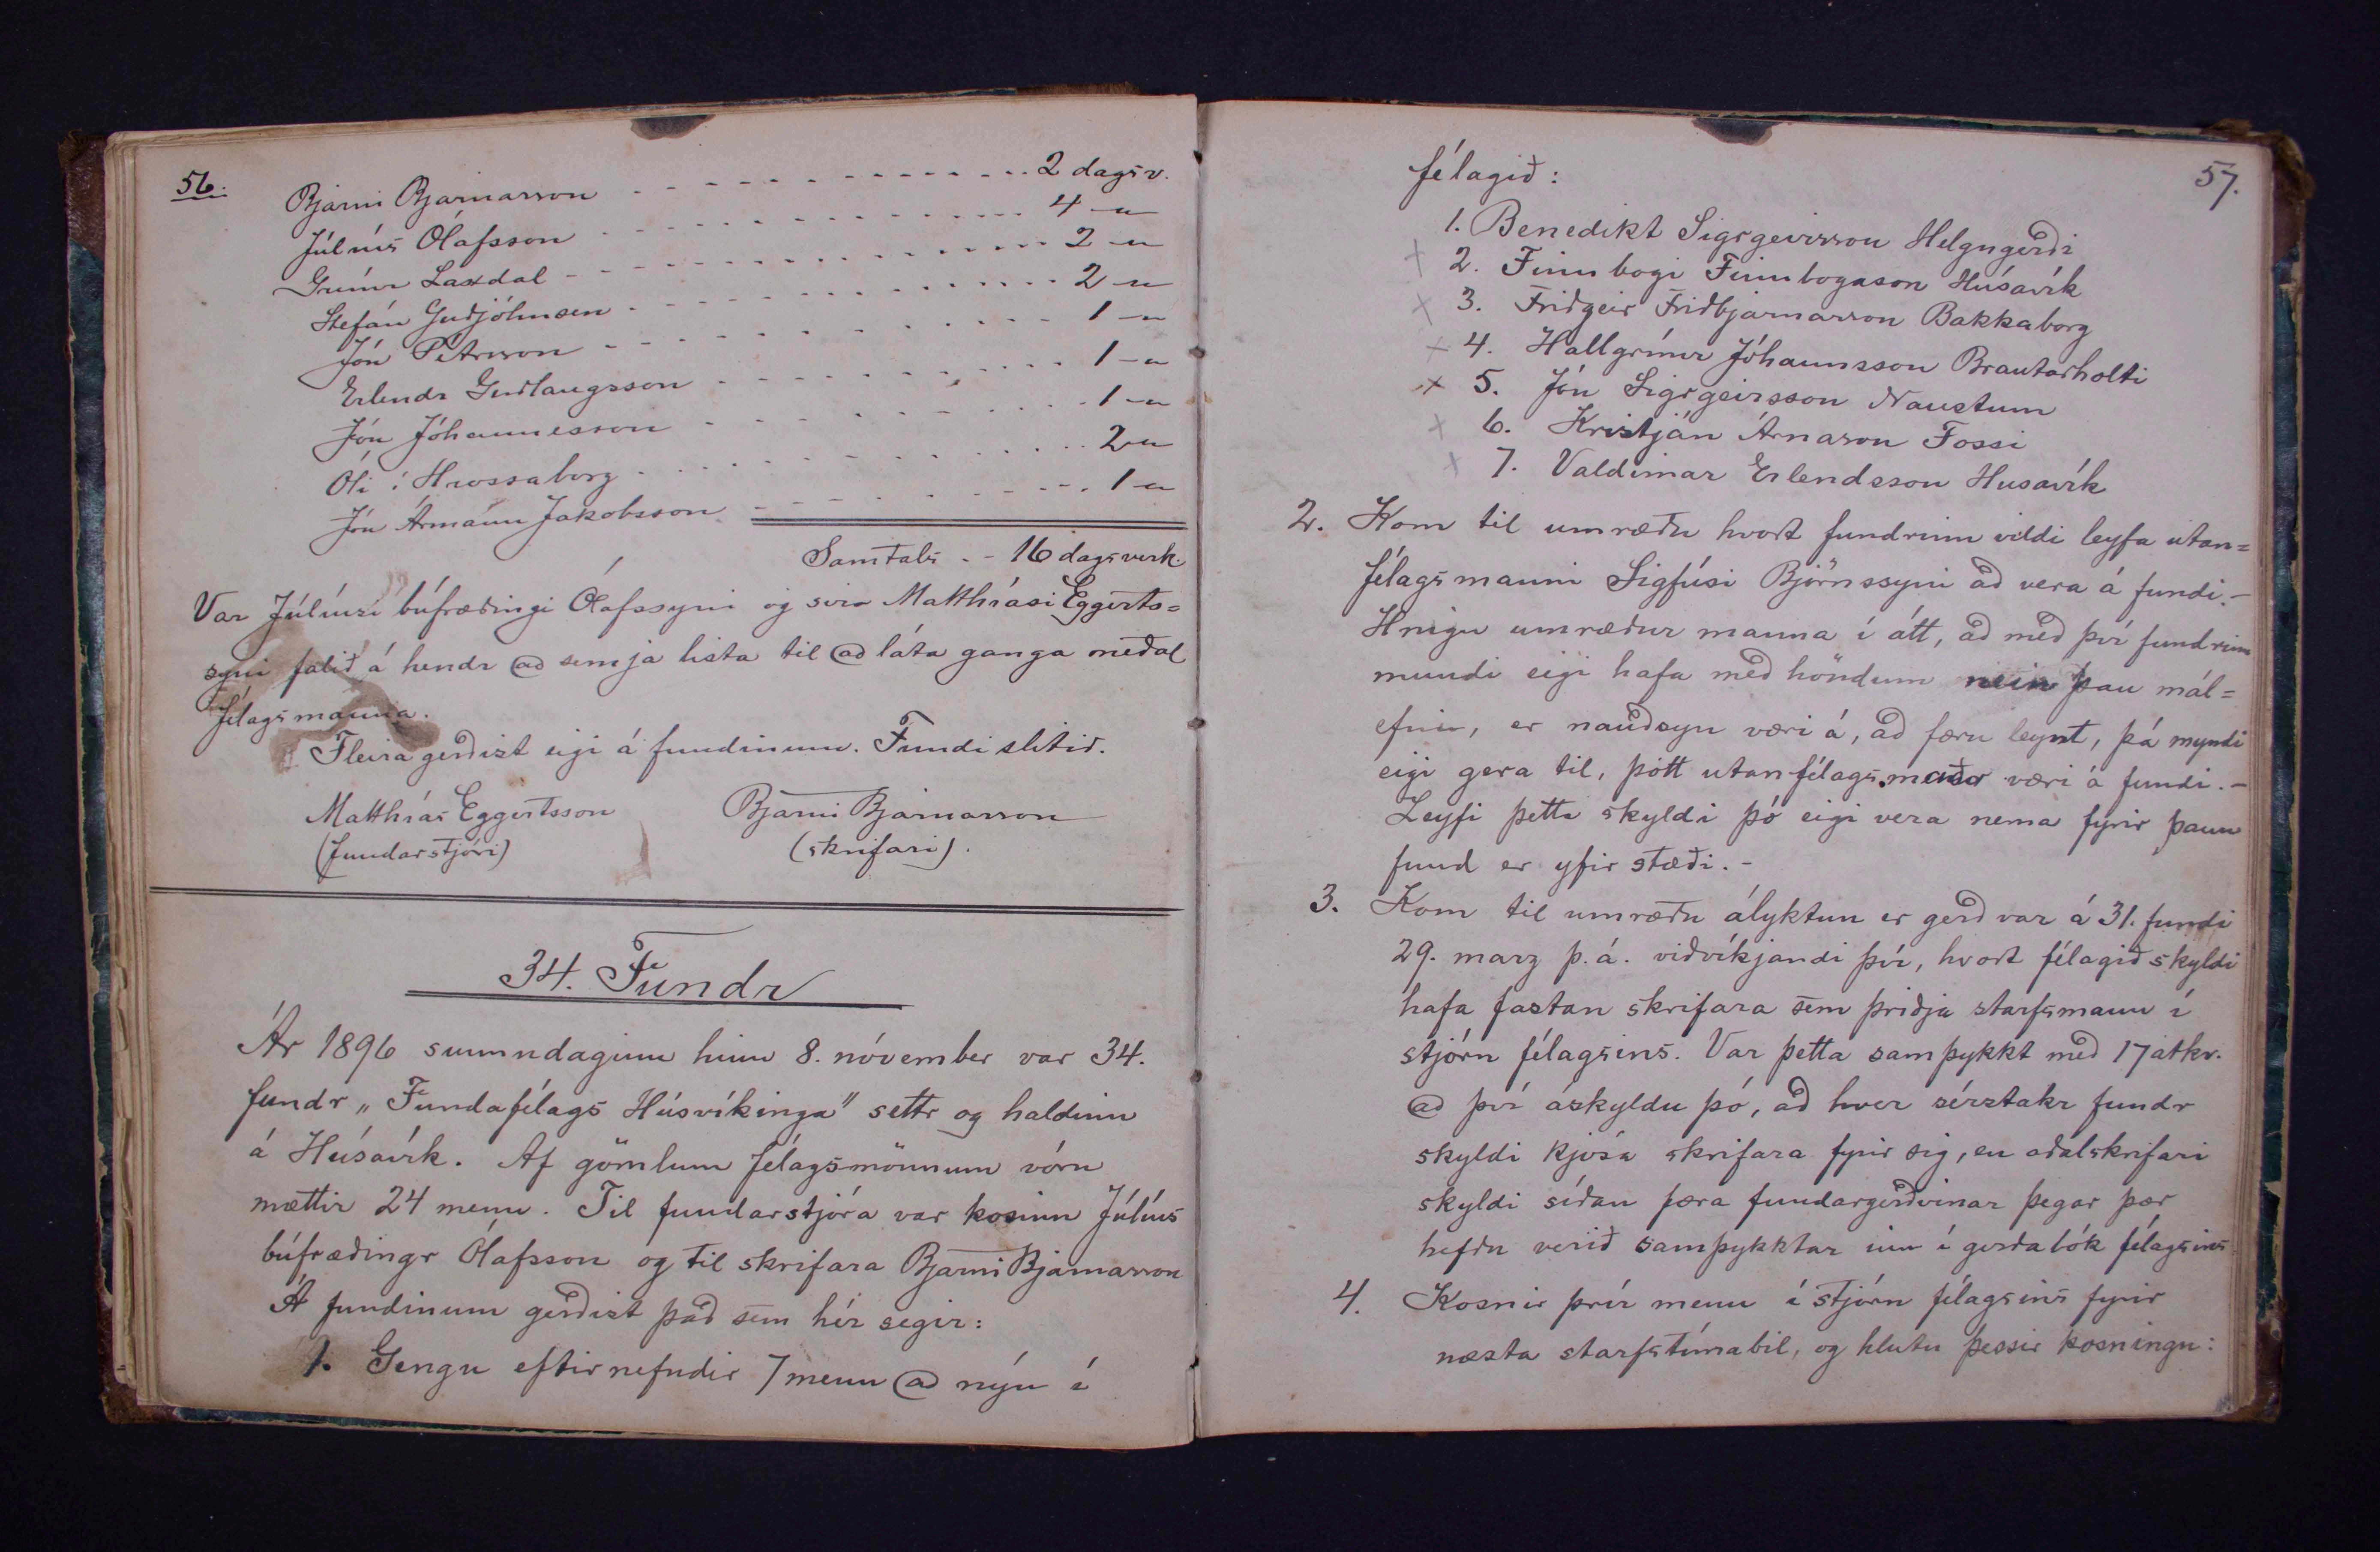 56.
Bjarni Bjarnarson - - - - - - - - - - - 2 dagsv.
Júlíus Ólafsson - - - - - - - - - - - 4 -"-
Grímr Laxdal - - - - - - - - - - - 2 -"-
Stefán Guðjóhnsen - - - - - - - - - - - 2 -"-
Jón Pétrsson - - - - - - - - - - - 1 -"-
Erlendr Guðlaugsson - - - - - - - - - - - 1 -"-
Jón Jóhannesson - - - - - - - - - - - 1 -"-
Óli í Hrossaborg - - - - - - - - - - - 2 -"-
Jón Ármann Jakobsson - - - - - - - - - - - 1 -"-
Samtals - - 16 dagsverk.
Var Júlíusi búfræðingi Ólafssyni og sira Matthíasi Eggerts=
syni falið á hendr að semja lista til að láta ganga meðal
félagsmanna.
Fleira gerðizt eigi á fundinum. Fundi slitið.
Matthías Eggertsson Bjarni Bjarnarson
(fundarstjóri) (skrifari).
34. Fundr
Ár 1896 sunnudaginn hinn 8. nóvember var 34.
fundr „Fundafélags Húsvíkinga" settr og haldinn
á Húsavík. Af gömlum félagsmönnum vóru
mættir 24 menn. Til fundarstjóra var kosinn Júlíus
búfræðingr Ólafsson og til skrifara Bjarni Bjarnarson
Á fundinum gerðizt það sem hér segir:
1. Gengu eftirnefndir 7 menn að nýu í
57.
félagið:
1. Benedikt Sigrgeirsson Helgugerði
+ 2. Finnbogi Finnbogason Húsavík
+ 3. Friðgeir Friðbjarnarson Bakkaborg
+ 4. Hallgrímr Jóhannsson Brautarholti
+ 5. Jón Sigrgeirsson Naustum
+ 6. Kristján Árnason Fossi
+ 7. Valdimar Erlendsson Husavík
2. Kom til umræðu hvort fundrinn vildi leyfa utan=
félagsmanni Sigfúsi Björnssyni að vera á fundi.-
Hnigu umræður manna í átt, að með því fundrinn
mundi eigi hafa með höndum nein þau mál=
efni, er nauðsyn væri á, að færu leynt, þá myndi
eigi gera til, þótt utanfélagsmaðr væri á fundi.-
Leyfi þetta skyldi þó eigi vera nema fyrir þann
fund er yfir stæði.-
3. Kom til umræðu ályktun er gerð var á 31. fundi
29. marz þ.á. viðvíkjandi því, hvort félagið skyldi
hafa fastan skrifara sem þriðja starfsmann í
stjórn félagsins. Var þetta samþykkt með 17 atkv.
að því áskyldu þó, að hver sérstakr fundr
skyldi kjósa skrifara fyrir sig, en aðalskrifari
skyldi síðan færa fundargerðirnar þegar þær
hefðu verið samþykktar inn í gerðabók félagsins
4. Kosnir þrír menn í stjórn félagsins fyrir
næsta starfstímabil, og hlutu þessir kosningu: